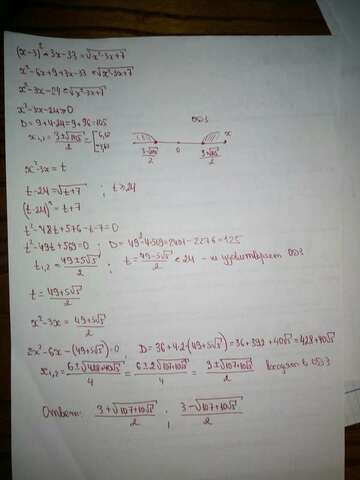 (x-3)²+3x-33=√(x²-3x+7)
x²-6x+9+3x-33=√(x²-3x+7)
x²-3x-24=√(x²-3x+7)
x²-3x-24≥0
D=9+4·24=9+96=105
x₁,₂=(3±√105)/2=[6,62 -3,62
ОДЗ
(3-√105)/2 0 (3+√105)/2 x
x²-3x=t
t-24=√(t+7) ; t≥24
(t-24)²=t+7
t²-48t+576-t-7=0
t²-49t+569=0 ; D=49²-4·569=2401-2276=125
t₁,₂=(49±5√5)/2 ; t=(49-5√5)/2<24 - не удовлетворяет ОДЗ
t=(49+5√5)/2
x²-3x=(49+5√5)/2
2x²-6x-(49+5√5)=0 ; D=36+4·2·(49+5√5)=36+392+40√5=428+40√5
x₁,₂=(6±√(428+40√5))/4=(6±2√(107+10√5))/4=(3±√(107+10√5))/2 входят в ОДЗ
Ответ: (3+√(107+10√5))/2 ; (3-√(107+10√5))/2